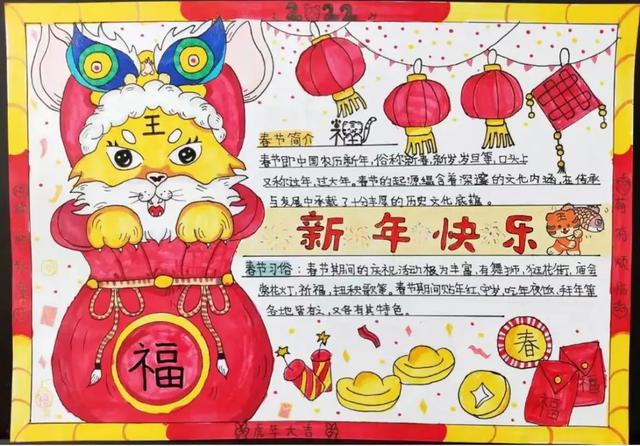 2022
王
春节简介
春节即中国农历新年,俗称新春、新岁、岁旦等,口头上
又称过年、过大年。春节的起源蕴含着深邃的文化内涵,在传承
与发展中承载了十分丰厚的历史文化底蕴。
新年快乐
春节习俗:春节期间的庆祝活动极为丰富,有舞狮,逛花街,庙会
赏花灯,祈福,扭秧歌等。春节期间贴年红,守岁,吃年夜饭,拜年等
各地皆有,又各有其特色。
福
春
福
福
虎年大吉